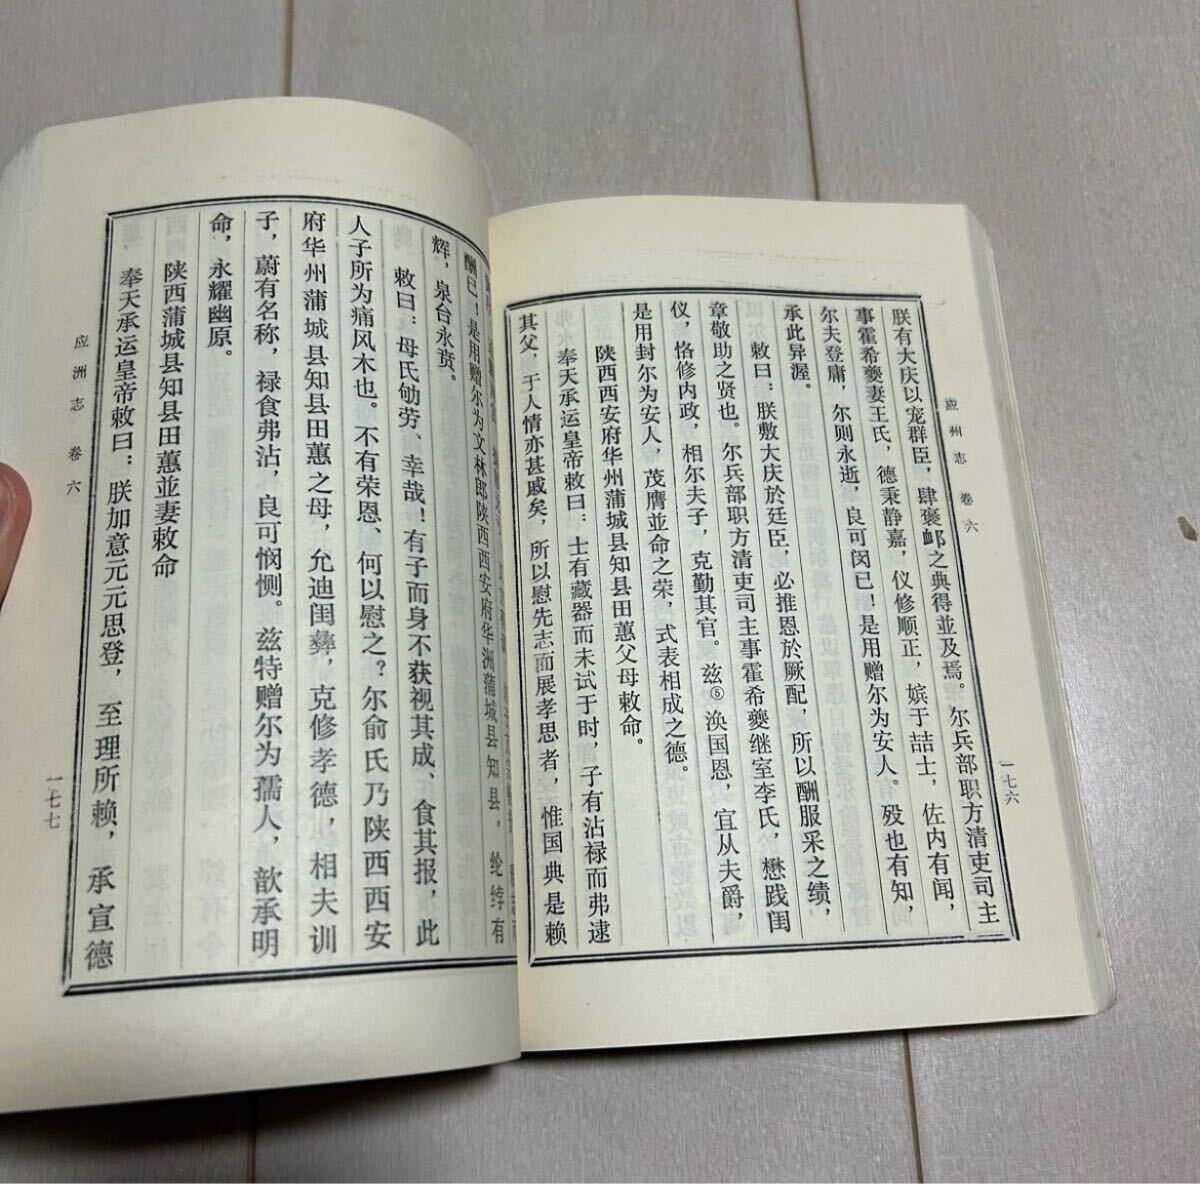 应州志 卷六
一七六
朕有大庆以宠群臣，肆褒邮之典得並及焉。尔兵部职方清吏司主
事霍希夔妻王氏，德秉静嘉，仪修顺正，嫔于喆士，佐内有闻，
尔夫登庸，尔则永逝，良可闵已！是用赠尔为安人。殁也有知，
承此异渥。
敕曰：朕敷大庆於廷臣，必推恩於厥配，所以酬服采之绩，
章敬助之贤也。尔兵部职方清吏司主事霍希夔继室李氏，懋践闺
仪，恪修内政，相尔夫子，克勤其官。兹⑤涣国恩，宜从夫爵，
是用封尔为安人，茂膺並命之荣，式表相成之德。
陕西西安府华州蒲城县知县田蕙父母敕命。
奉天承运皇帝敕曰：士有藏器而未试于时，子有沾禄而弗逮
其父，于人情亦甚戚矣，所以慰先志而展孝思者，惟国典是赖
酬已！是用赠尔为文林郎陕西西安府华洲蒲城县知县，纶綍有
辉，泉台永贲。
敕曰：母氏劬劳、幸哉！有子而身不获视其成、食其报，此
人子所为痛风木也。不有荣恩、何以慰之？尔俞氏乃陕西西安
府华州蒲城县知县田蕙之母，允迪闺彝，克修孝德，相夫训
子，蔚有名称，禄食弗沾，良可悯恻。兹特赠尔为孺人，歆承明
命，永耀幽原。
陕西蒲城县知县田蕙並妻敕命
奉天承运皇帝敕曰：朕加意元元思登，至理所赖，承宣德
应洲志 卷六
一七七